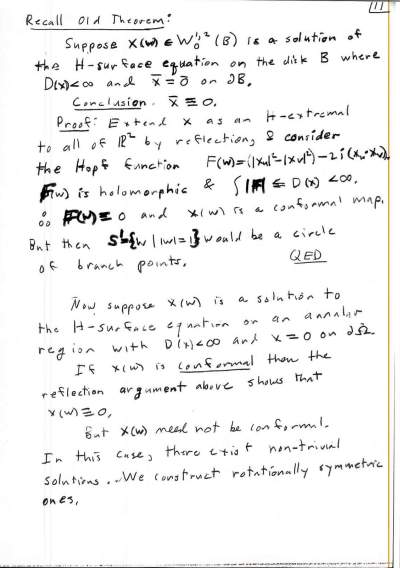 11
Recall Old Theorem:
Suppose X(w) ∈ W₀¹,² (B) is a solution of
the H-surface equation on the disk B where
D(x)<∞ and x̄ = ō on ∂B.
Conclusion. x̄ ≡ 0.
Proof: Extend x as an H-extremal
to all of ℝ² by reflection, & consider
the Hopf function F(w)=(|xu|²-|xv|²)-2i(xu·xv).
F(w) is holomorphic & ∫|F| ≤ D(x) <∞.
∴ F(w) ≡ 0 and x(w) is a conformal map.
But then S¹={w | |w|=1} would be a circle
of branch points. QED
Now suppose x(w) is a solution to
the H-surface equation on an annular
region with D(x)<∞ and x = 0 on ∂Ω.
If x(w) is conformal then the
reflection argument above shows that
x(w) ≡ 0.
But x(w) need not be conformal.
In this case, there exist non-trivial
solutions... We construct rotationally symmetric
ones.